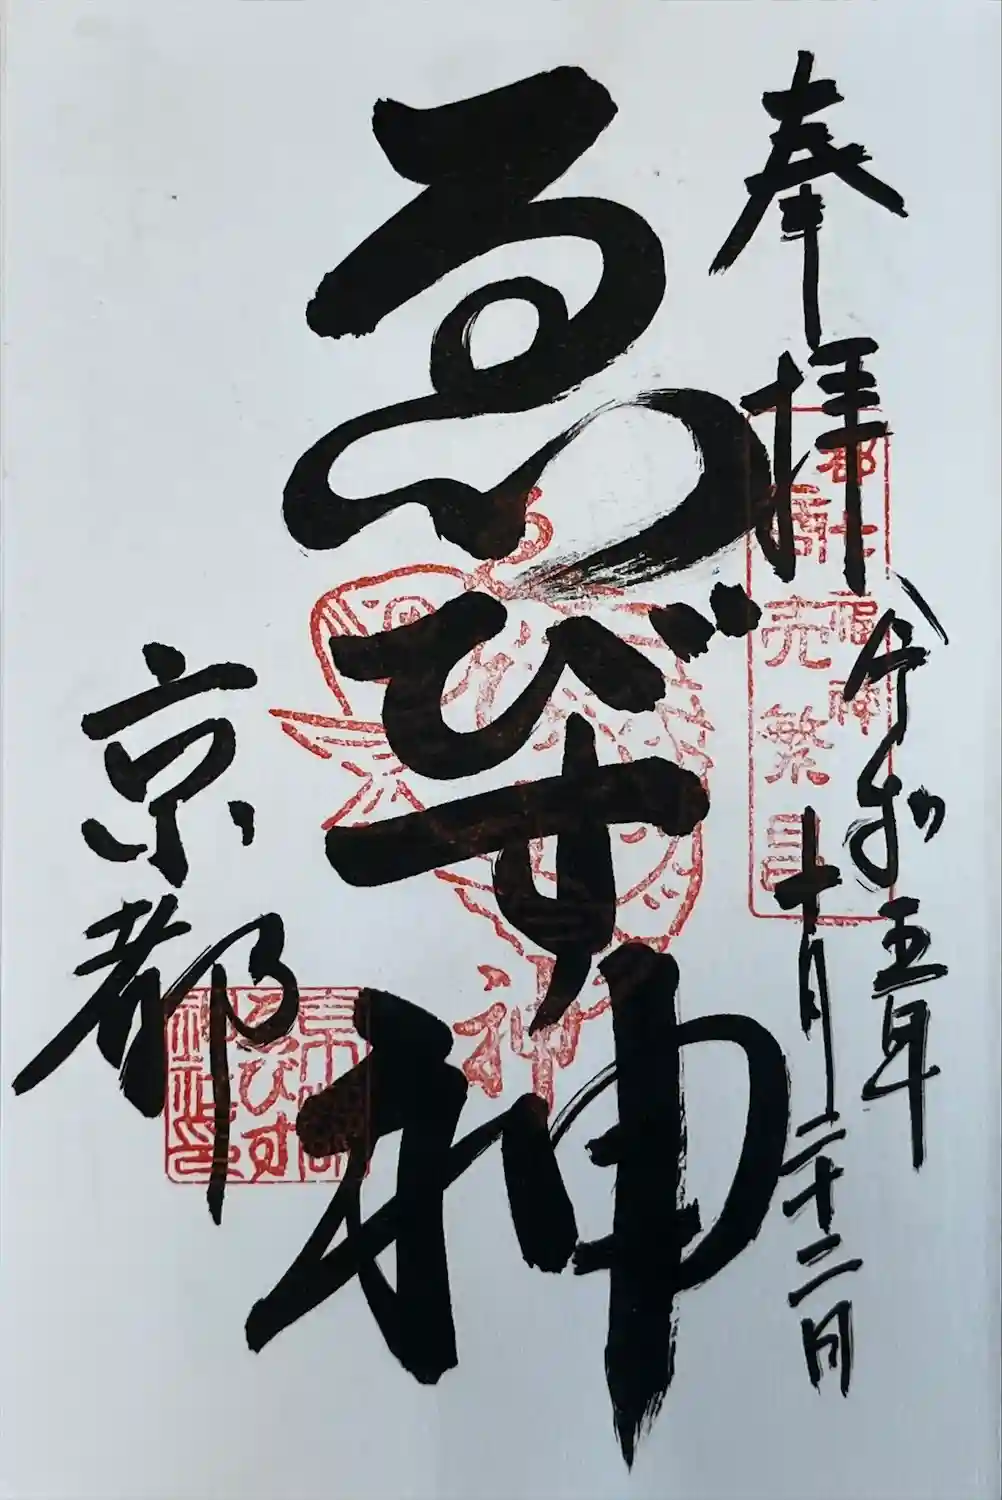 奉拝
令和五年
十月二十二日
ゑびす神
京都
都七福神
商売繁昌
神
京都
ゑびす
神社印